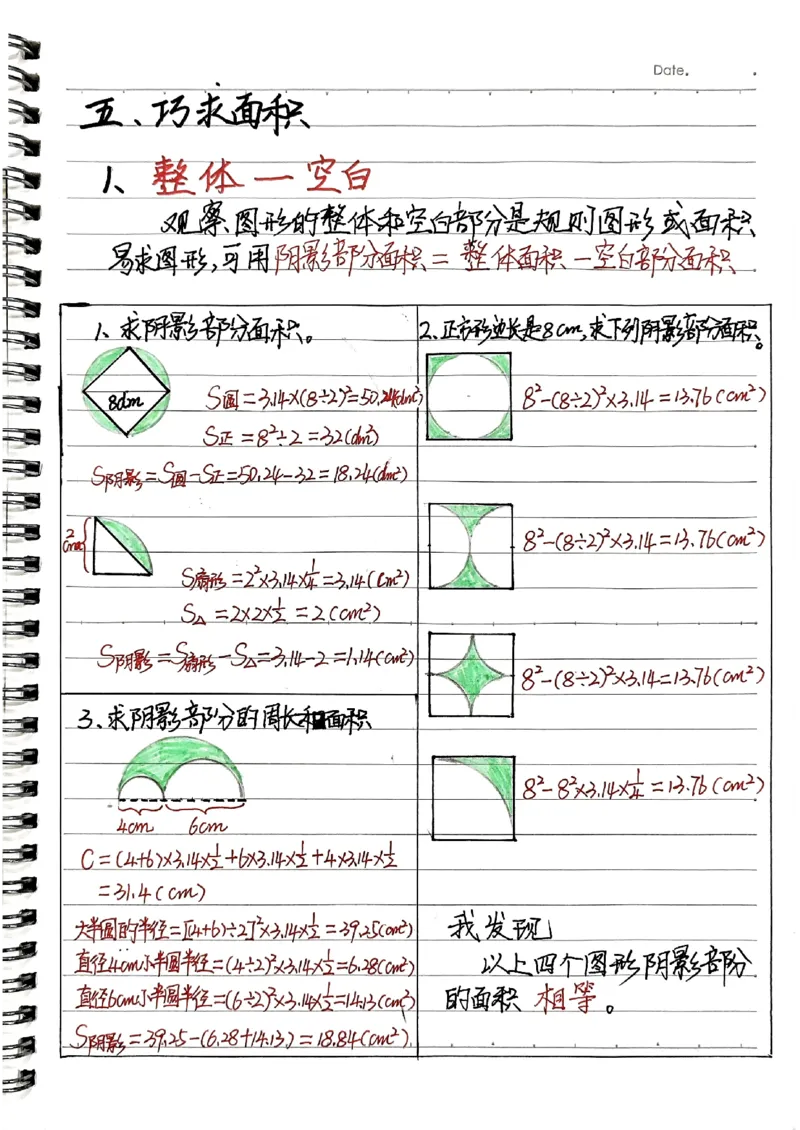 Date.
五、巧求面积
1、整体一空白
观察图形的整体和空白部分是规则图形或面积
易求图形,可用阴影部分面积=整体面积-空白部分面积
1、求阴影部分面积。
8dm
S圆=3.14×(8÷2)²=50.24(dm²)
S正=8²÷2=32(dm²)
S阴影=S圆-S正=50.24-32=18.24(dm²)
2cm
S扇形=2²×3.14×1/4=3.14(cm²)
S△=2×2×1/2=2(cm²)
S阴影=S扇形-S△=3.14-2=1.14(cm²)
2、正方形边长是8cm,求下列阴影部分面积。
8²-(8÷2)²×3.14=13.76(cm²)
8²-(8÷2)²×3.14=13.76(cm²)
8²-(8÷2)²×3.14=13.76(cm²)
8²-8²×3.14×1/4=13.76(cm²)
我发现
以上四个图形阴影部分
的面积 相等。
3、求阴影部分的周长和面积
4cm 6cm
C=(4+6)×3.14×1/2+6×3.14×1/2+4×3.14×1/2
=31.4(cm)
大半圆的半径=[(4+6)÷2]²×3.14×1/2=39.25(cm²)
直径4cm小半圆半径=(4÷2)²×3.14×1/2=6.28(cm²)
直径6cm小半圆半径=(6÷2)²×3.14×1/2=14.13(cm²)
S阴影=39.25-(6.28+14.13)=18.84(cm²)